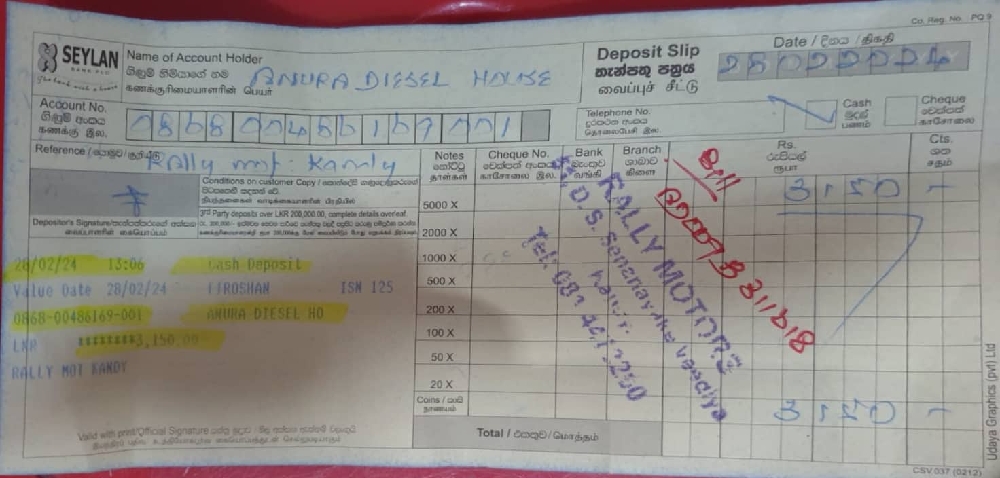 Cu. Reg. No. PQ 9
SEYLAN
BANK PLC
Name of Account Holder
ගිණුම් හිමියාගේ නම
கணக்குரிமையாளரின் பெயர்
ANURA DIESEL HOUSE
Deposit Slip
තැන්පතු පත්‍රය
வைப்புச் சீட்டு
Date / දිනය / திகதி
28022024
Account No.
ගිණුම් අංකය
கணக்கு இல.
0868 00486169 001
Telephone No.
දුරකථන අංකය
தொலைபேசி இல.
Cash
මුදල්
பணம்
Cheque
චෙක්පත්
காசோலை
Reference /
Rally mot. Kandy
Conditions on customer Copy /
3rd Party deposits over LKR 200,000.00, complete details overleaf.
Depositor's Signature/
Notes
නෝට්ටු
தாள்கள்
Cheque No.
චෙක්පත් අංකය
காசோலை இல.
Bank
බැංකුව
வங்கி
Branch
ශාඛාව
கிளை
Rs.
රුපියල්
ரூபா
Cts.
ශත
சதம்
5000 X
2000 X
1000 X
500 X
200 X
100 X
50 X
20 X
Coins / කාසි
நாணயம்
3150 -
Bill
RALLY MOTORS
D. S. Senanayake Veediya
Kandy.
28/02/24 13:06 Cash Deposit
Value Date 28/02/24 IJROSHAN ISN 125
0868-00486169-001 ANURA DIESEL HO
LKR ********3,150.00
RALLY MOT KANDY
3150 -
Valid with print/Official Signature
Total / එකතුව / மொத்தம்
Udaya Graphics (pvt) Ltd
CSV 037 (0212)